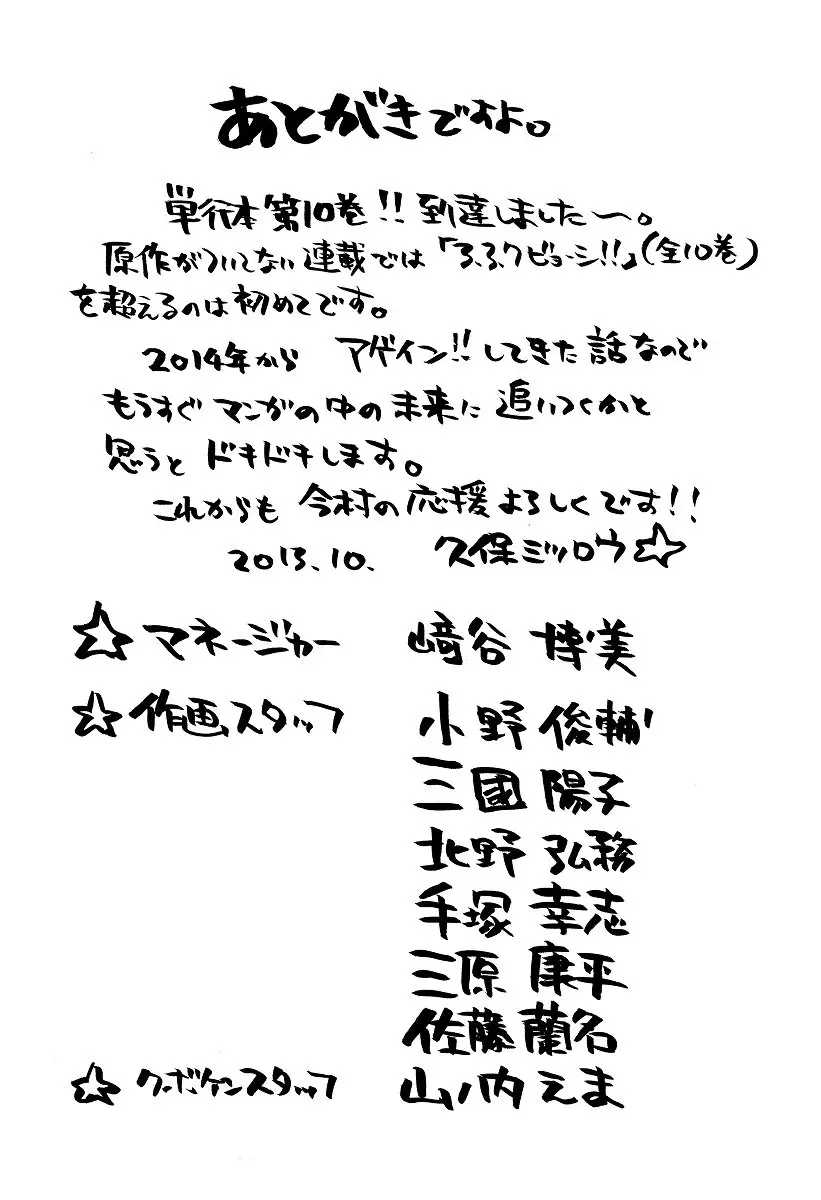 あとがきですよ。
単行本第10巻!!到達しました〜。
原作がついてない連載では「3.3.7ビョーシ!!」(全10巻)
を超えるのは初めてです。
2014年から アゲイン!!してきた話なので
もうすぐ マンガの中の未来に 追いつくかと
思うと ドキドキします。
これからも 今村の応援よろしくです!!
2013.10. 久保ミツロウ☆
☆マネージャー 﨑谷 博美
☆作画スタッフ 小野 俊輔
三國 陽子
北野 弘務
手塚 幸志
三原 康平
佐藤 蘭名
☆クボケンスタッフ 山ノ内えま